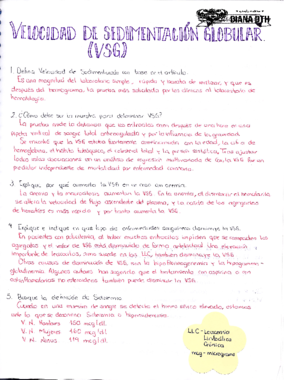 DIANA DTH
VELOCIDAD DE SEDIMENTACIÓN GLOBULAR
(VSG)
1. Define Velocidad de Sedimentación en base al artículo.
Es una magnitud del laboratorio simple, rápida y barata de realizar y que es
después del hemograma. La prueba más solicitada por los clínicos al laboratorio de
hematología.
2. ¿Cómo debe ser la muestra para determinar VSG?
La prueba mide la distancia que los eritrocitos han descendido en una hora en una
pipeta vertical de sangre total anticoagulada y por la influencia de la gravedad.
Se mostró que la VSG estaba fuertemente correlacionada con la edad, la cifra de
hemoglobina, el hábito tabáquico, el colesterol total y la presión sistólica. Tras ajustar
todas estas asociaciones en un análisis de regresión multivariada de Cox la VSG fue un
predictor independiente de mortalidad por enfermedad coronaria.
3. Explique, por qué aumenta la VSG en un caso con anemia.
La anemia y la macrocitosis aumentan la VSG. En la anemia, al disminuir el hematocrito
se altera la velocidad de flujo ascendente del plasma, y la caída de los agregados
de hematíes es más rápida y por tanto aumenta la VSG.
4. Explique e indique en que tipo de enfermedades sanguíneas disminuye la VSG.
En pacientes con policitemia, el haber muchos eritrocitos impiden que se compacten los
agregados y el valor de VSG está disminuido de forma artefactual. Una elevación
importante de leucocitos, como sucede en las LLC, también disminuye la VSG.
Otras causas de disminución de VSG, son la hipofibrinogenemia y la hipogamma-
globulinemia. Algunos autores han sugerido que el tratamiento con aspirina o con
antiinflamatorios no esteroideos también puede disminuir la VSG.
5. Busque la definición de Sideremia.
Cuando en una muestra de sangre se detecta el hierro sérico elevado, estamos
ante lo que se denomina Sideremia o hipersideremia.
V. N. Hombres 160 mcg/dl.
V. N. Mujeres 160 mcg/dl.
V. N. Niños 119 mcg/dl.
LLC - Leucemia
Linfocítica
Crónica
mcg - microgramo